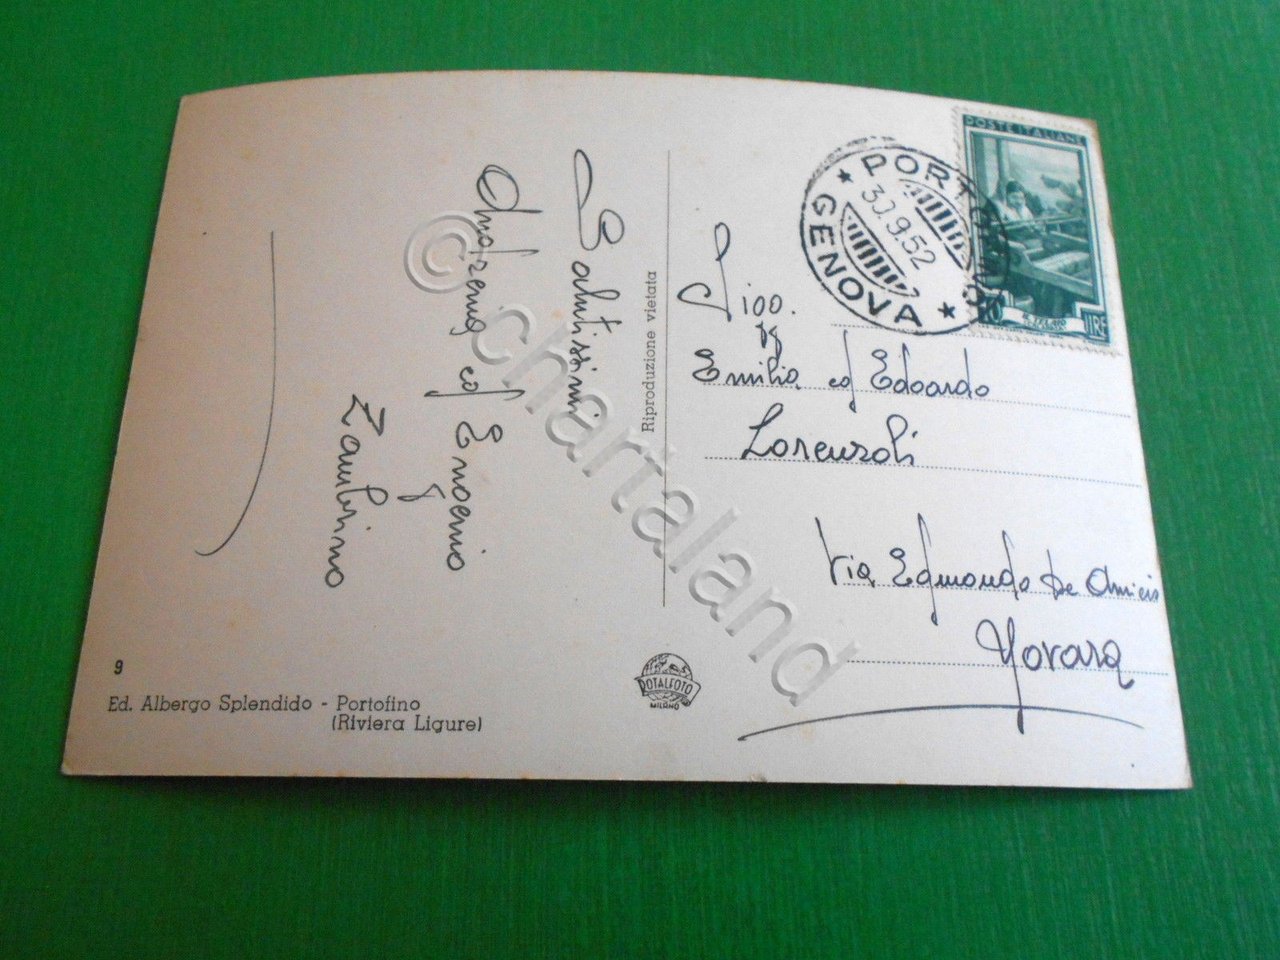 Salutissimi
ed Eugenio
Zambrino
Riproduzione vietata
9
Ed. Albergo Splendido - Portofino
(Riviera Ligure)
ROTALFOTO
MILANO
PORTOFINO
30.9.52
GENOVA
POSTE ITALIANE
LIRE
Emilia ed Edoardo
Lorenzoli
Via Edmondo De Amicis
Novara
© chartaland